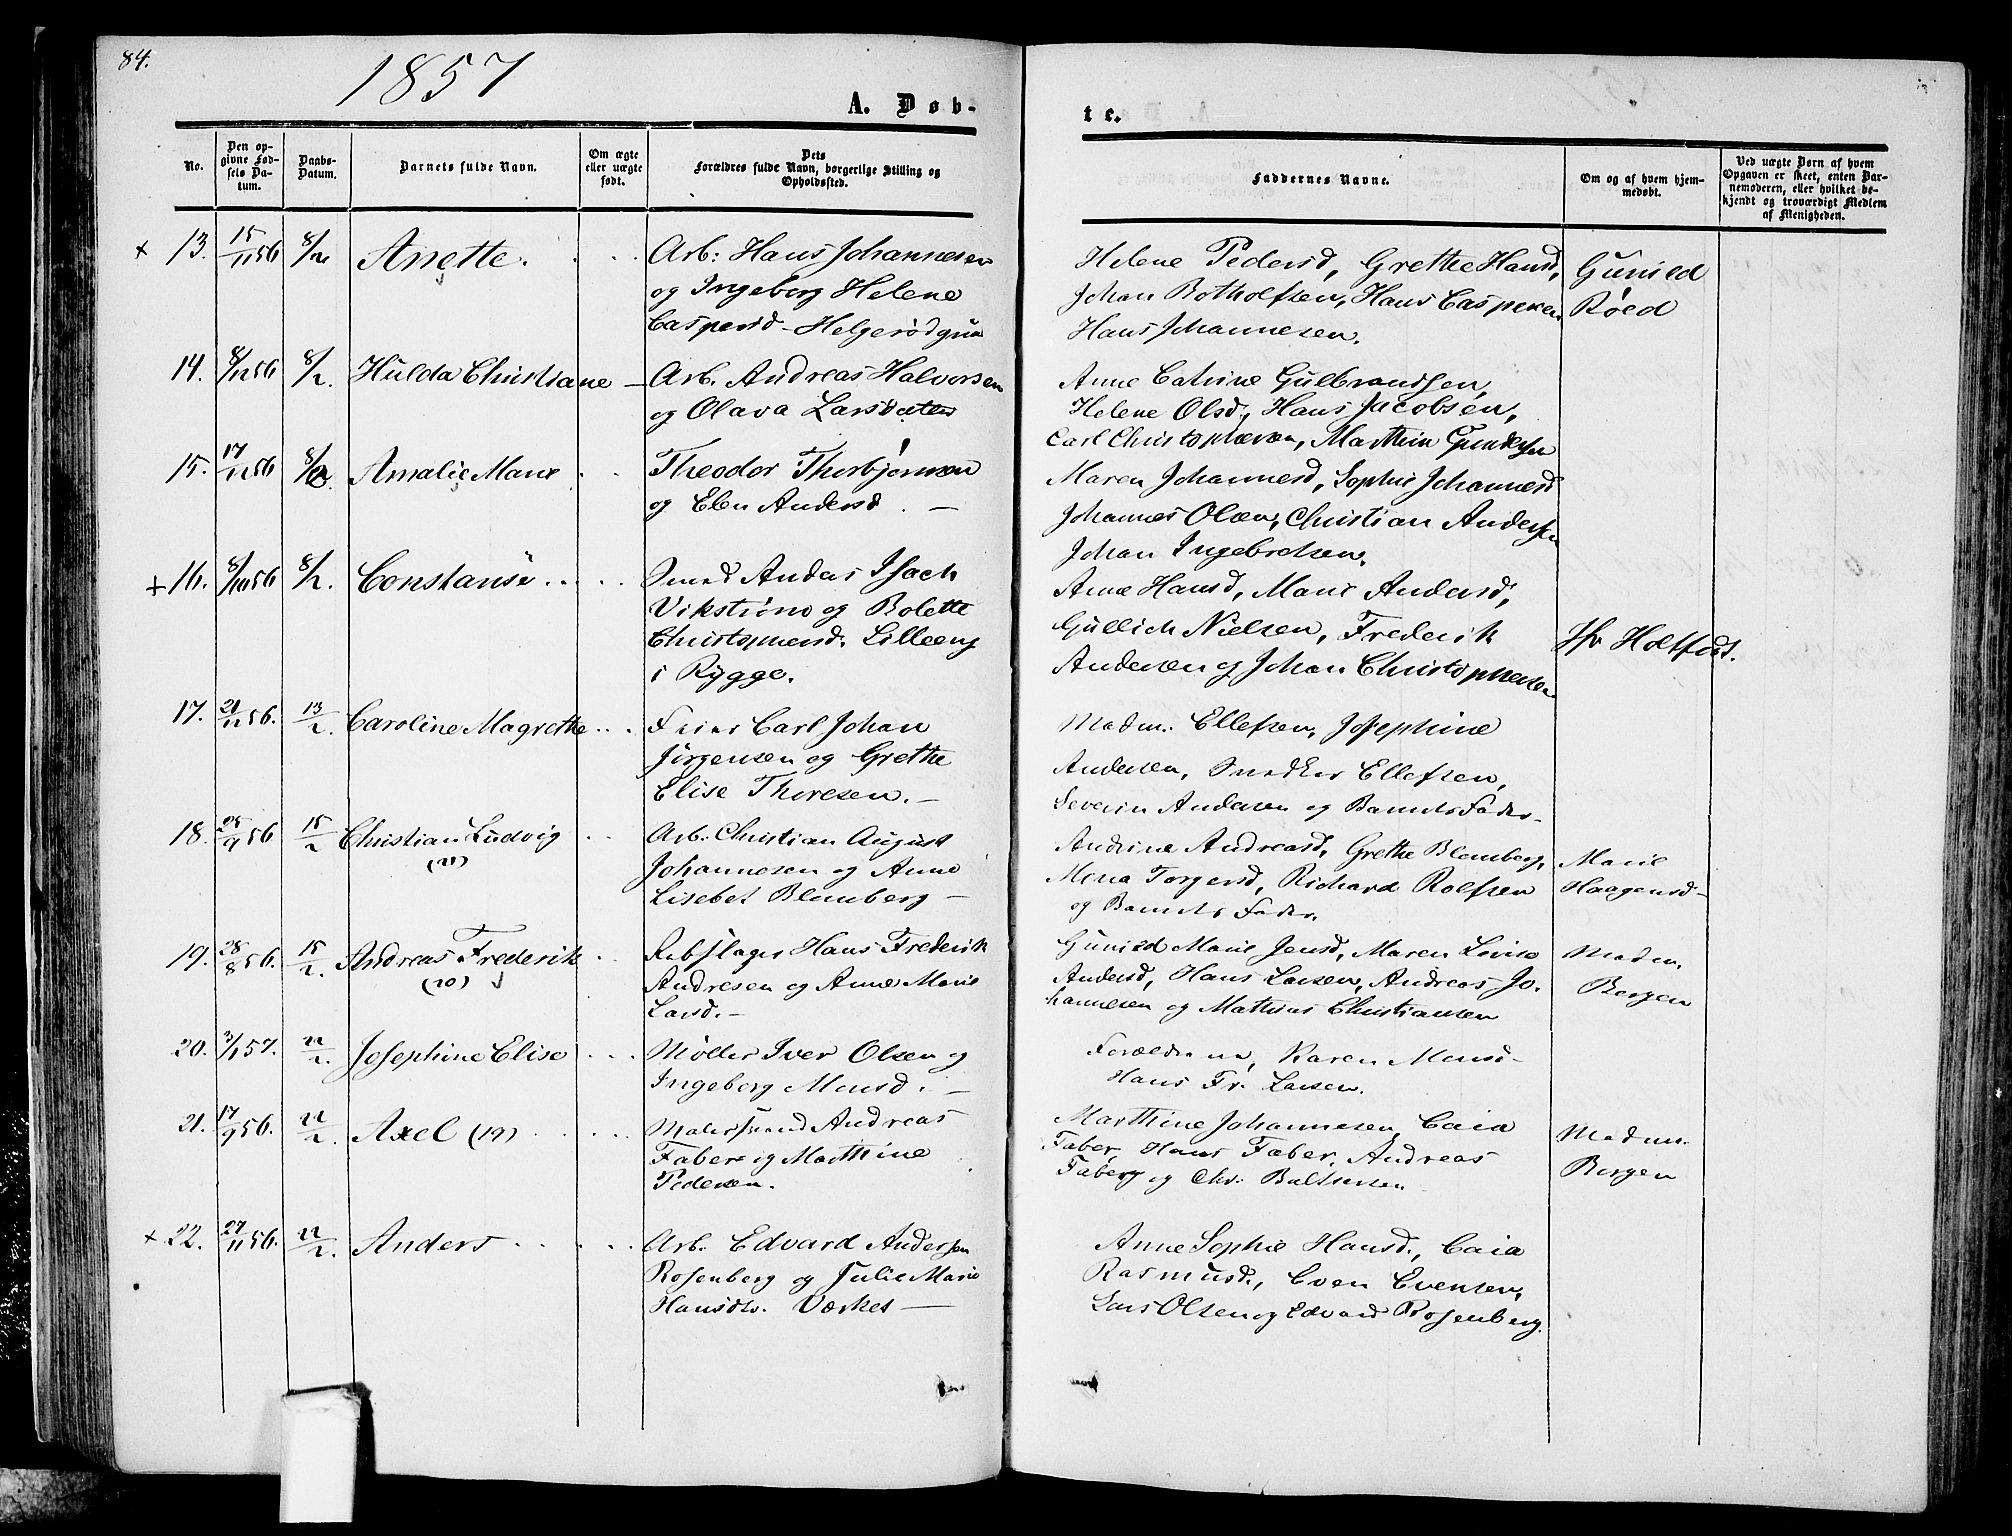 84.
1857
A. Døb-
te.
No.
Den op-
givne Fød-
sels Da-
tum.
Daabs-
Datum.
Barnets fulde Navn.
Om ægte
eller uægte
født.
Dets
Forældres fulde Navn, borgerlige Stilling og
Opholdssted.
Faddernes Navne.
Om og af hvem hjem-
medøbt.
Ved uægte Børn af hvem
Opgaven er skeet, enten Bar-
nemoderen, eller hvilket be-
kjendt og troværdigt Medlem
af Menigheden.
+ 13. 15/11 56 8/2 Anette.
Arb: Hans Johannesen
og Ingeborg Helene
Caspersd - Helgerød
Helene Pedersd, Grethe Hansd,
Johan Botholfsen, Hans Caspersen
Hans Johannesen.
Gunild
Røed
14. 8/12 56 8/2. Hulda Christiane -
Arb. Andreas Halvorsen
og Olava Larsdatter
Anne Catrine Gulbrandsen,
Helene Olsd, Hans Jacobsen,
Carl Christophersen, Marthin Gundersen
15. 17/12 56 8/2 Amalie Marie
Theodor Thorbjørnsen
og Elen Andersd. -
Maren Johannesd, Sophie Johannesd
Johannes Olsen, Christian Andersen
Johan Ingebretsen.
+ 16. 8/10 56 8/2. Constanse
Smed Andas Isach
Vikstrøm og Bolette
Christophersd. Lilleeng
i Rygge.
Anne Hansd, Marie Andersd,
Gullich Nielsen, Frederik
Andersen og Johan Christophersen
Jfr Holtfodt.
17. 21/12 56. 13/2 Caroline Magrethe
Carl Johan
Jørgensen og Grethe
Elise Thoresen. -
Madm. Ellefsen, Josephine
Andersen, Snedker Ellefsen,
Severin Andersen og Barnets Fader -
18. 25/9 56 15/2 Christian Ludvig
(21)
Arb. Christian August
Johannesen og Anne
Lisebet Blomberg -
Andrine Andreasd, Grethe Blomberg,
Mina Torgersd, Richard Rolfsen
og Barnets Fader.
Marie
Haagensd -
19. 28/8 56. 15/2 Andreas Frederik
(20)
Rebslager Hans Frederik
Andresen og Anne Marie
Larsd. -
Gunild Marie Jensd, Maren Lovise
Andersd, Hans Larsen, Andreas Jo-
hannesen og Mathias Christiansen
Madm.
Bergen
20. 3/1 57. 22/2. Josephine Elise
Møller Iver Olsen og
Ingeborg Monsd. -
Forældrene, Karen Monsd -
Hans Fr. Larsen.
21. 17/9 56. 22/2. Axel (19)
Andreas
Faber og Marthine
Pedersen.
Marthine Johannesen, Caia
Faber, Hans Faber, Andreas
Faberg og Chr. Baltsersen
Madm.
Bergen
+ 22. 27/11 56. 22/2. Anders
Arb. Edvard Andersen
Rosenberg og Julie Marie
Hansdtr. Værket -
Anne Sophie Hansd., Caia
Rasmusd., Even Evensen,
Lars Olsen og Edvard Rosenberg.